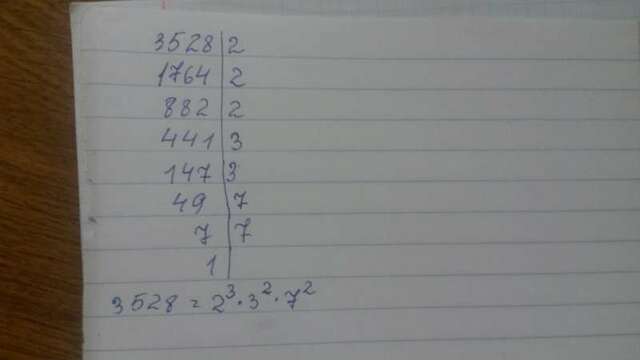 3528 | 2
1764 | 2
882 | 2
441 | 3
147 | 3
49 | 7
7 | 7
1 |
3528 = 2³·3²·7²